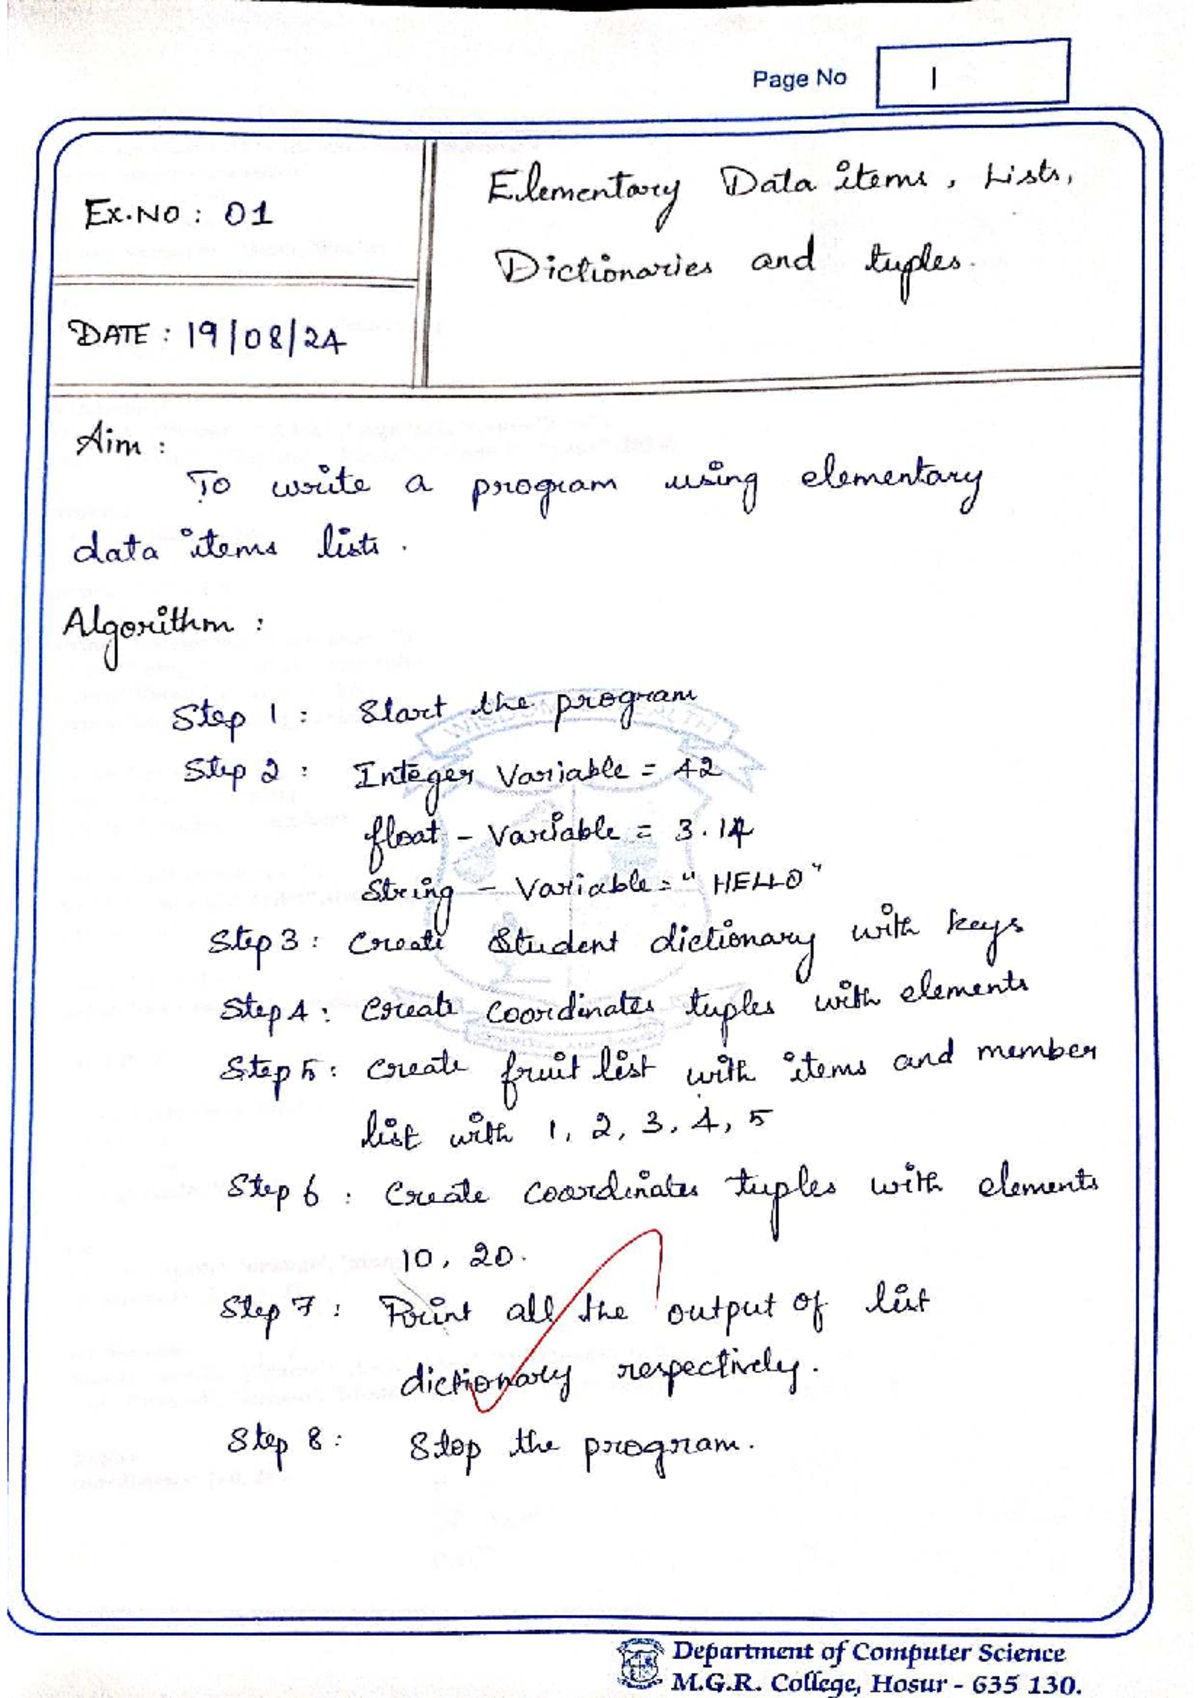 Page No 1
Elementary Data items, Lists,
EX.NO : 01
Dictionaries and tuples.
DATE : 19/08/24
Aim :
To write a program using elementary
data items lists.
Algorithm :
Step 1 : Start the program
Step 2 : Integer Variable = 42
float - Variable = 3.14
String - Variable = "HELLO"
Step 3 : Create Student dictionary with keys
Step 4 : Create coordinates tuples with elements
Step 5 : Create fruit list with items and member
list with 1, 2, 3, 4, 5
Step 6 : Create coordinates tuples with elements
10, 20.
Step 7 : Print all the output of list
dictionary respectively.
Step 8 : Stop the program.
Department of Computer Science
M.G.R. College, Hosur - 635 130.